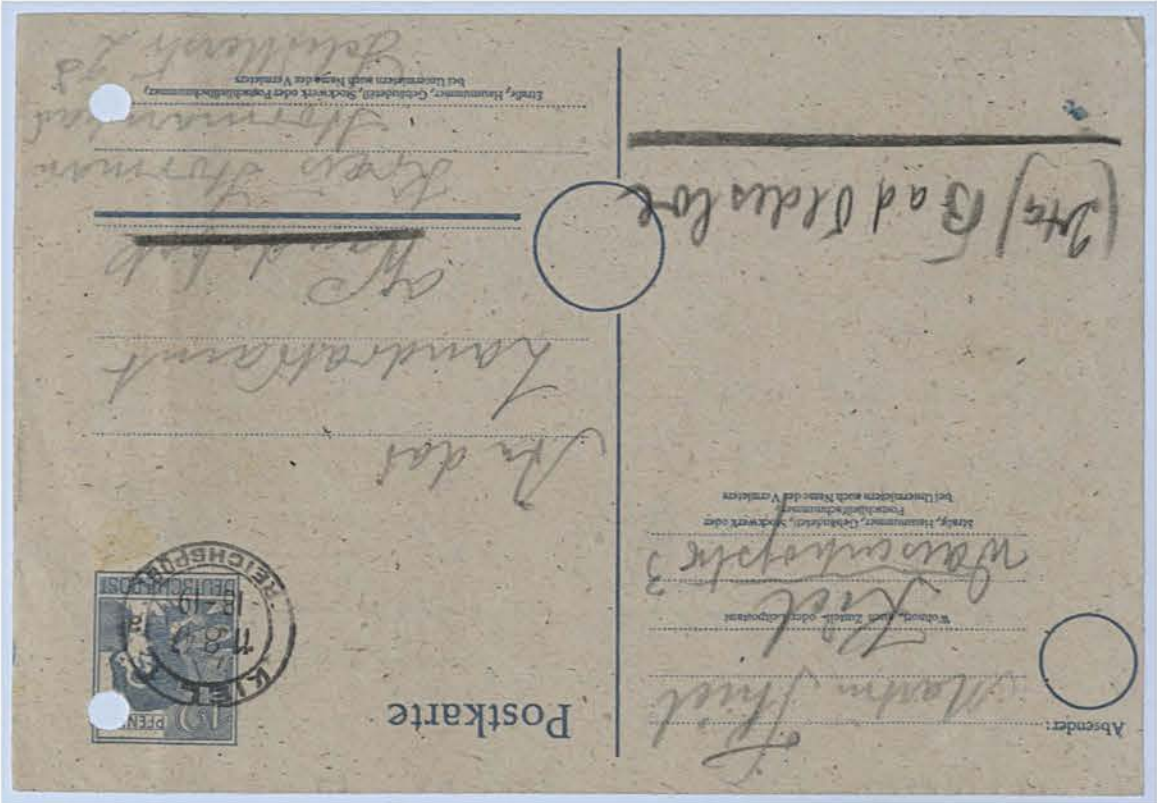 Absender:
Martin Thiel
Wohnort, auch Zustell- oder Leitpostamt
Kiel
Waisenhofstr 3
Straße, Hausnummer, Gebäudeteil, Stockwerk oder
Postschließfachnummer
bei Untermietern auch Name des Vermieters
(24a) Bad Oldesloe
Postkarte
12
PFENNIG
DEUTSCHE POST
KIEL
11.8.47
18-19
An das
Landratsamt
Wandsbek
Kreis Stormarn
Stormarnhaus
Straße, Hausnummer, Gebäudeteil, Stockwerk oder Postschließfachnummer,
bei Untermietern auch Name des Vermieters